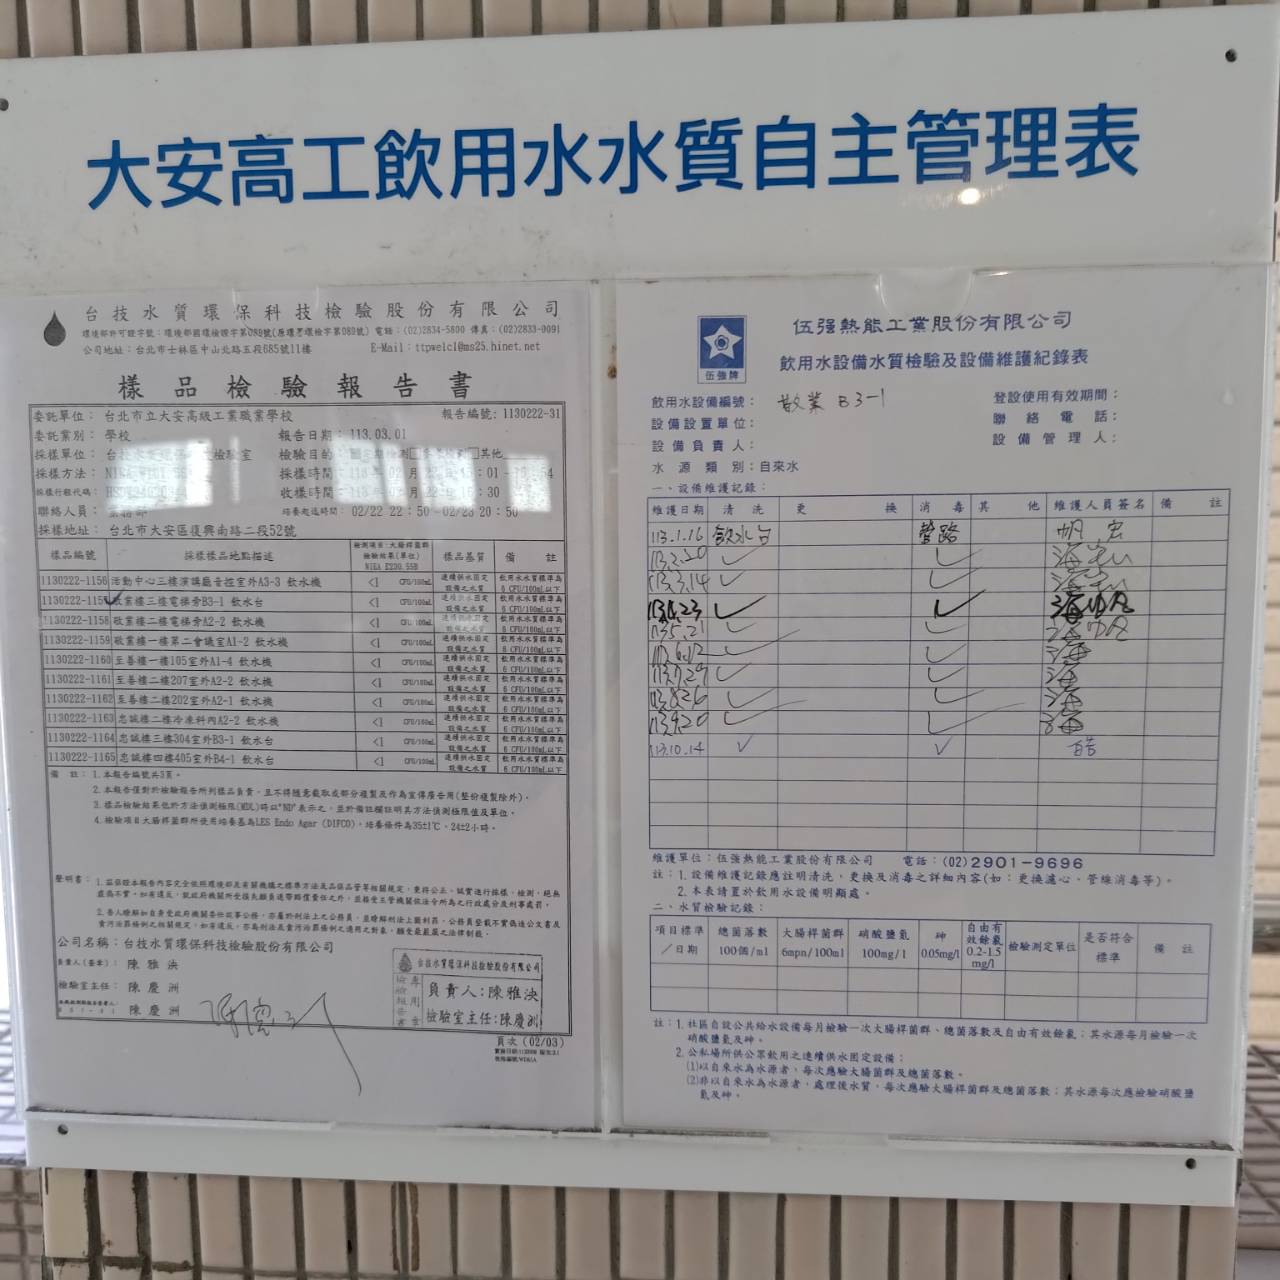 大安高工飲用水水質自主管理表
台技水質環保科技檢驗股份有限公司
環境部許可證字號：環境部國環檢證字第089號(原環署環檢字第089號) 電話：(02)2834-5800 傳真：(02)2833-0091
公司地址：台北市士林區中山北路五段685號11樓 E-Mail：ttpwelcl@ms25.hinet.net
樣品檢驗報告書
委託單位：台北市立大安高級工業職業學校 報告編號：1130222-31
委託業別：學校 報告日期：113.03.01
採樣單位：台技水質環保 檢驗室 檢驗目的：定期檢測 其他
採樣方法： 採樣時間：
採樣行程代碼： 收樣時間：
聯絡人員： 培養起迄時間：02/22 22：50 -02/23 20：50
採樣地址：台北市大安區復興南路二段52號
樣品編號 採樣樣品地點描述 檢測項目：大腸桿菌群 檢驗結果(單位) NIEA E230.55B 樣品基質 備註
1130222-1156 活動中心三樓演講廳音控室外A3-3 飲水機 <1 CFU/100mL 連續供水固定設備之水質 飲用水水質標準為6 CFU/100mL以下
1130222-115 敬業樓三樓電梯旁B3-1 飲水台 <1 CFU/100mL 連續供水固定設備之水質 飲用水水質標準為6 CFU/100mL以下
1130222-1158 敬業樓二樓電梯旁A2-2 飲水機 <1 CFU/100mL 連續供水固定設備之水質 飲用水水質標準為6 CFU/100mL以下
1130222-1159 敬業樓一樓第二會議室A1-2 飲水機 <1 CFU/100mL 連續供水固定設備之水質 飲用水水質標準為6 CFU/100mL以下
1130222-1160 至善樓一樓105室外A1-4 飲水機 <1 CFU/100mL 連續供水固定設備之水質 飲用水水質標準為6 CFU/100mL以下
1130222-1161 至善樓二樓207室外A2-2 飲水機 <1 CFU/100mL 連續供水固定設備之水質 飲用水水質標準為6 CFU/100mL以下
1130222-1162 至善樓二樓202室外A2-1 飲水機 <1 CFU/100mL 連續供水固定設備之水質 飲用水水質標準為6 CFU/100mL以下
1130222-1163 忠誠樓二樓冷凍科內A2-2 飲水機 <1 CFU/100mL 連續供水固定設備之水質 飲用水水質標準為6 CFU/100mL以下
1130222-1164 忠誠樓三樓304室外B3-1 飲水台 <1 CFU/100mL 連續供水固定設備之水質 飲用水水質標準為6 CFU/100mL以下
1130222-1165 忠誠樓四樓405室外B4-1 飲水台 <1 CFU/100mL 連續供水固定設備之水質 飲用水水質標準為6 CFU/100mL以下
備 註：1.本報告編號共3頁。
2.本報告僅對於檢驗報告所列樣品負責，且不得隨意截取或部分複製及作為宣傳廣告用(整份複製除外)。
3.樣品檢驗結果低於方法偵測極限(MDL)時以"ND"表示之，並於備註欄註明其方法偵測極限值及單位。
4.檢驗項目大腸桿菌群所使用培養基為LES Endo Agar (DIFCO)，培養條件為35±1℃、24±2小時。
聲明書：1.茲保證本報告內容完全依照環境部及有關機構之標準方法及品保品管等相關規定，秉持公正、誠實進行採樣、檢測。絕無
虛偽不實。如有違反，就政府機關所受損失願負連帶賠償責任之外，並接受主管機關依法令所為之行政處分及刑事處罰。
2.吾人瞭解如自身受政府機關委任從事公務，亦屬於刑法上之公務員，並瞭解刑法上圖利罪、公務員登載不實偽造公文書及
貪污治罪條例之相關規定，如有違反，亦為刑法及貪污治罪條例之適用之對象，願受最嚴厲之法律制裁。
公司名稱：台技水質環保科技檢驗股份有限公司
負責人(簽章)：陳雅泱
檢驗室主任：陳慶洲
陳慶洲
台技水質環保科技檢驗股份有限公司
檢驗報告專用章
負責人：陳雅泱
檢驗室主任：陳慶洲
頁次(02/03)
伍強牌
伍强熱能工業股份有限公司
飲用水設備水質檢驗及設備維護紀錄表
飲用水設備編號：敬業 B3-1 登設使用有效期間：
設備設置單位： 聯絡電話：
設備負責人： 設備管理人：
水源類別：自來水
一、設備維護記錄：
維護日期 清洗 更換 消毒 其他 維護人員簽名 備註
113.1.16 飲水台 管路
113.2.20 ✓ ✓
113.3.14 ✓ ✓
113.4.23 ✓ ✓
113.5.21 ✓ ✓
113.6.12 ✓ ✓
113.7.29 ✓ ✓
113.8.26 ✓ ✓
113.9.20 ✓ ✓
113.10.14 ✓ ✓
維護單位：伍強熱能工業股份有限公司 電話：(02)2901-9696
註：1.設備維護記錄應註明清洗、更換及消毒之詳細內容(如：更換濾心、管線消毒等)。
2.本表請置於飲用水設備明顯處。
二、水質檢驗記錄：
項目標準／日期 總菌落數 100個/ml 大腸桿菌群 6mpn/100ml 硝酸鹽氮 100mg/l 砷 0.05mg/l 自由有效餘氯 0.2-1.5 mg/l 檢驗測定單位 是否符合標準 備註
註：1.社區自設公共給水設備每月檢驗一次大腸桿菌群、總菌落數及自由有效餘氯；其水源每月檢驗一次
硝酸鹽氮及砷。
2.公私場所供公眾飲用之連續供水固定設備：
⑴以自來水為水源者，每次應驗大腸桿菌群及總菌落數。
⑵非以自來水為水源者，處理後水質，每次應驗大腸桿菌群及總菌落數；其水源每次應檢驗硝酸鹽
氮及砷。